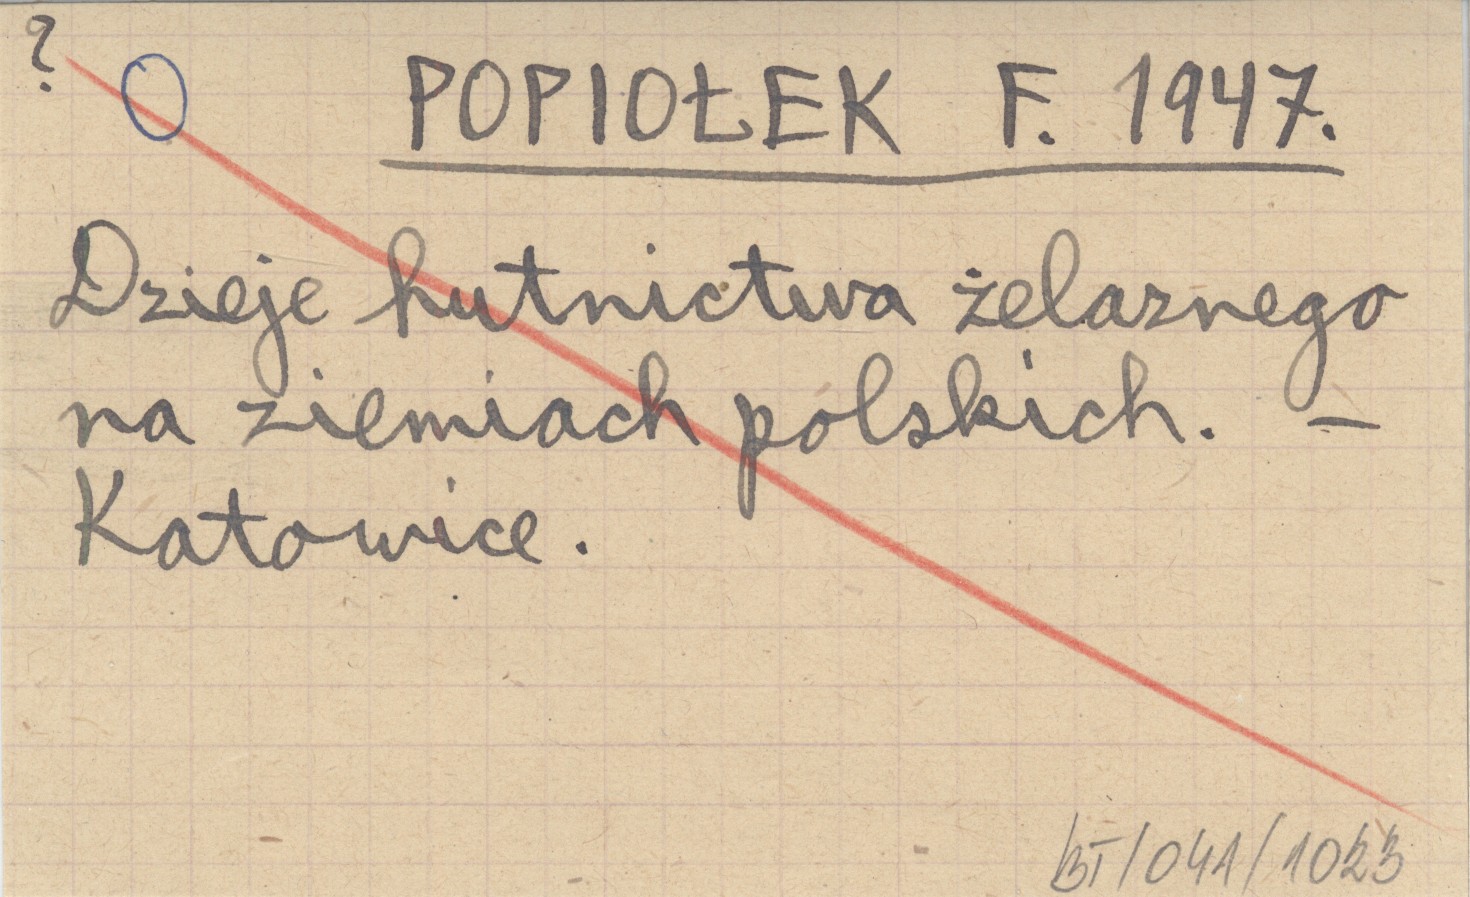 ?
O POPIOŁEK F. 1947.
Dzieje hutnictwa żelaznego
na ziemiach polskich. –
Katowice.
BT/041/1023